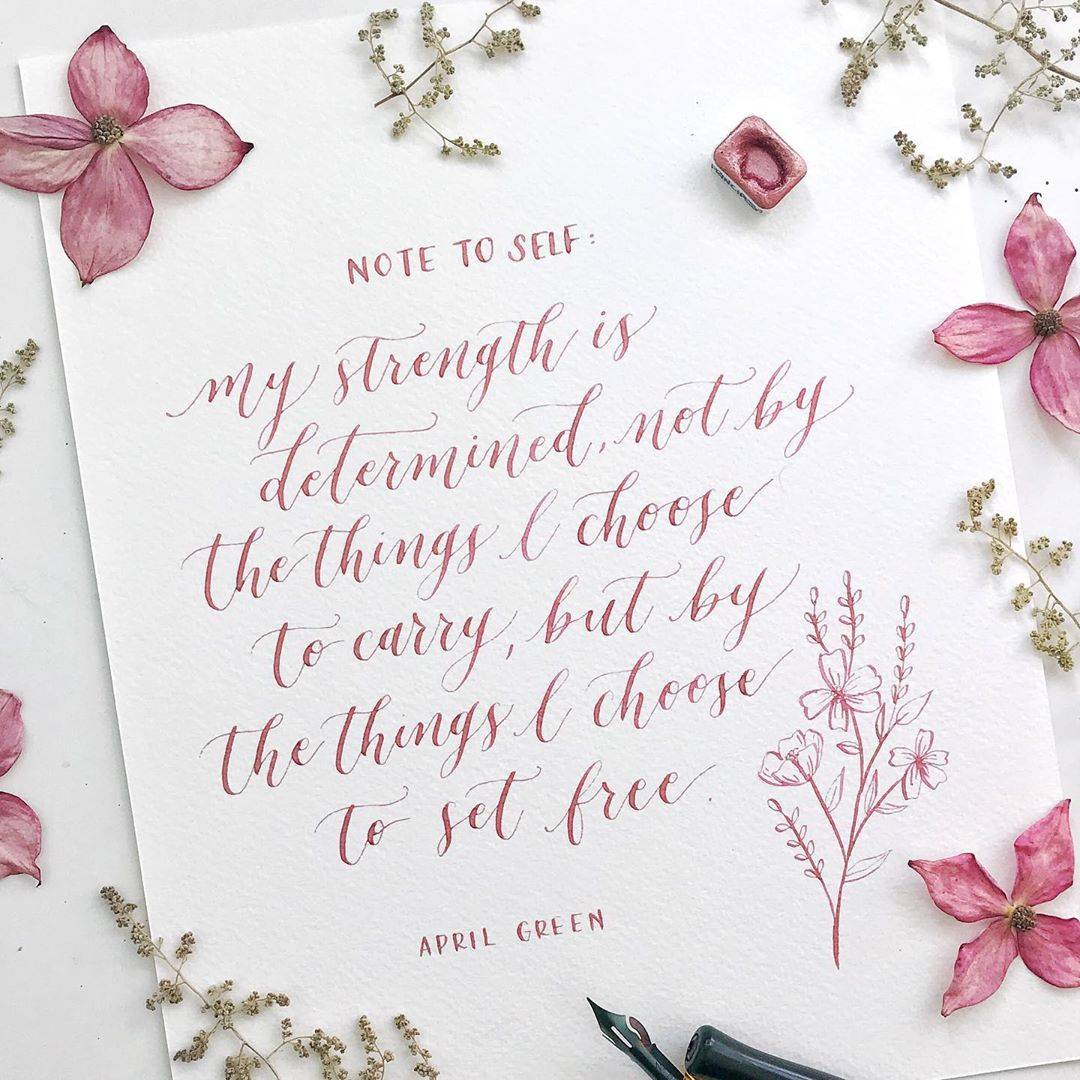 NOTE TO SELF:
my strength is
determined, not by
the things I choose
to carry, but by
the things I choose
to set free.
APRIL GREEN